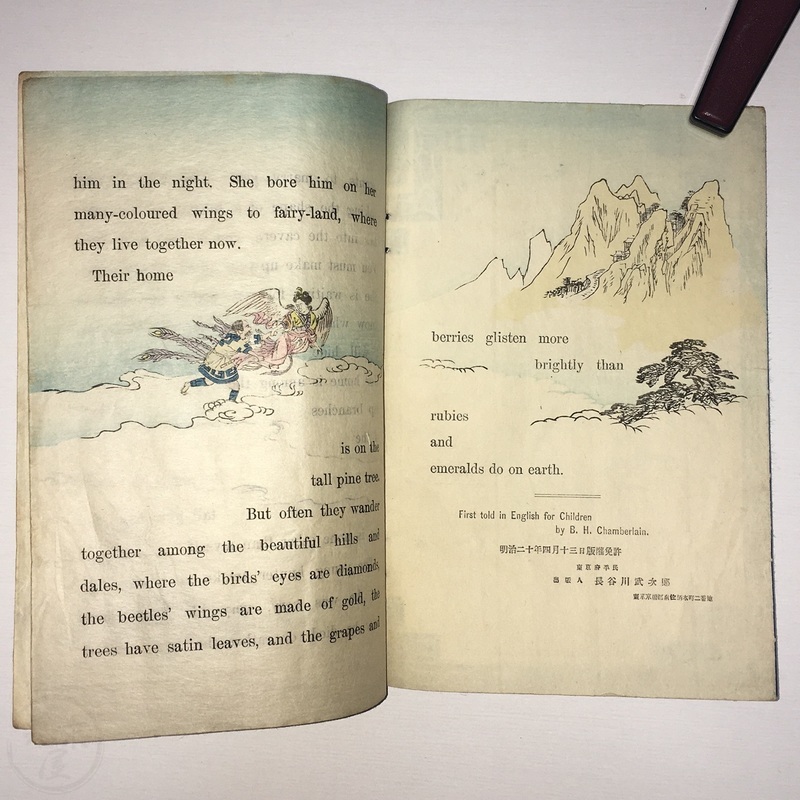 him in the night. She bore him on her
many-coloured wings to fairy-land, where
they live together now.
Their home
is on the
tall pine tree.
But often they wander
together among the beautiful hills and
dales, where the birds' eyes are diamonds,
the beetles' wings are made of gold, the
trees have satin leaves, and the grapes and
berries glisten more
brightly than
rubies
and
emeralds do on earth.
First told in English for Children
by B. H. Chamberlain.
明治二十年四月十三日版權免許
東京府平民
出版人 長谷川武次郎